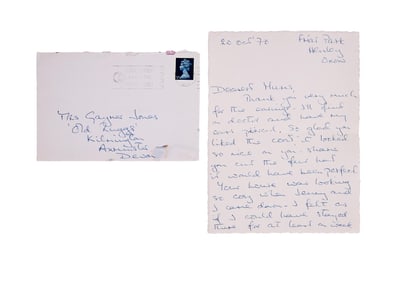 Mrs Gaynor Jones
'Old
Kilmington
Axminster
Devon
20 Oct '70
Friar Park
Henley
Oxon
Dearest Mum,
Thank you very much
for the earrings. I'll find
a doctor and have my
ears pierced. So glad you
liked the coat, it looked
so nice on you shame
you cut the fur hat
it would have been perfect
Your house was looking
so cosy when Jenny and
I came down. I felt as
if I could have stayed
there for at least a week